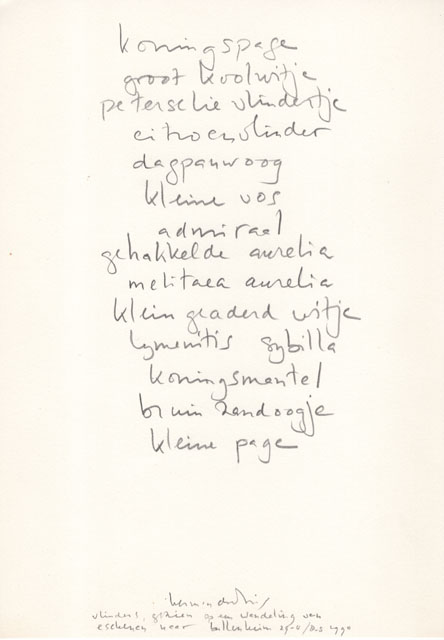 koningspage
groot koolwitje
peterselie vlindertje
citroenvlinder
dagpauwoog
kleine vos
admiraal
gehakkelde aurelia
melitaea aurelia
klein geaderd witje
lymenitis sybilla
koningsmantel
bruin zandoogje
kleine page
herman de vries
vlinders, gezien op een wandeling van
eschenz naar